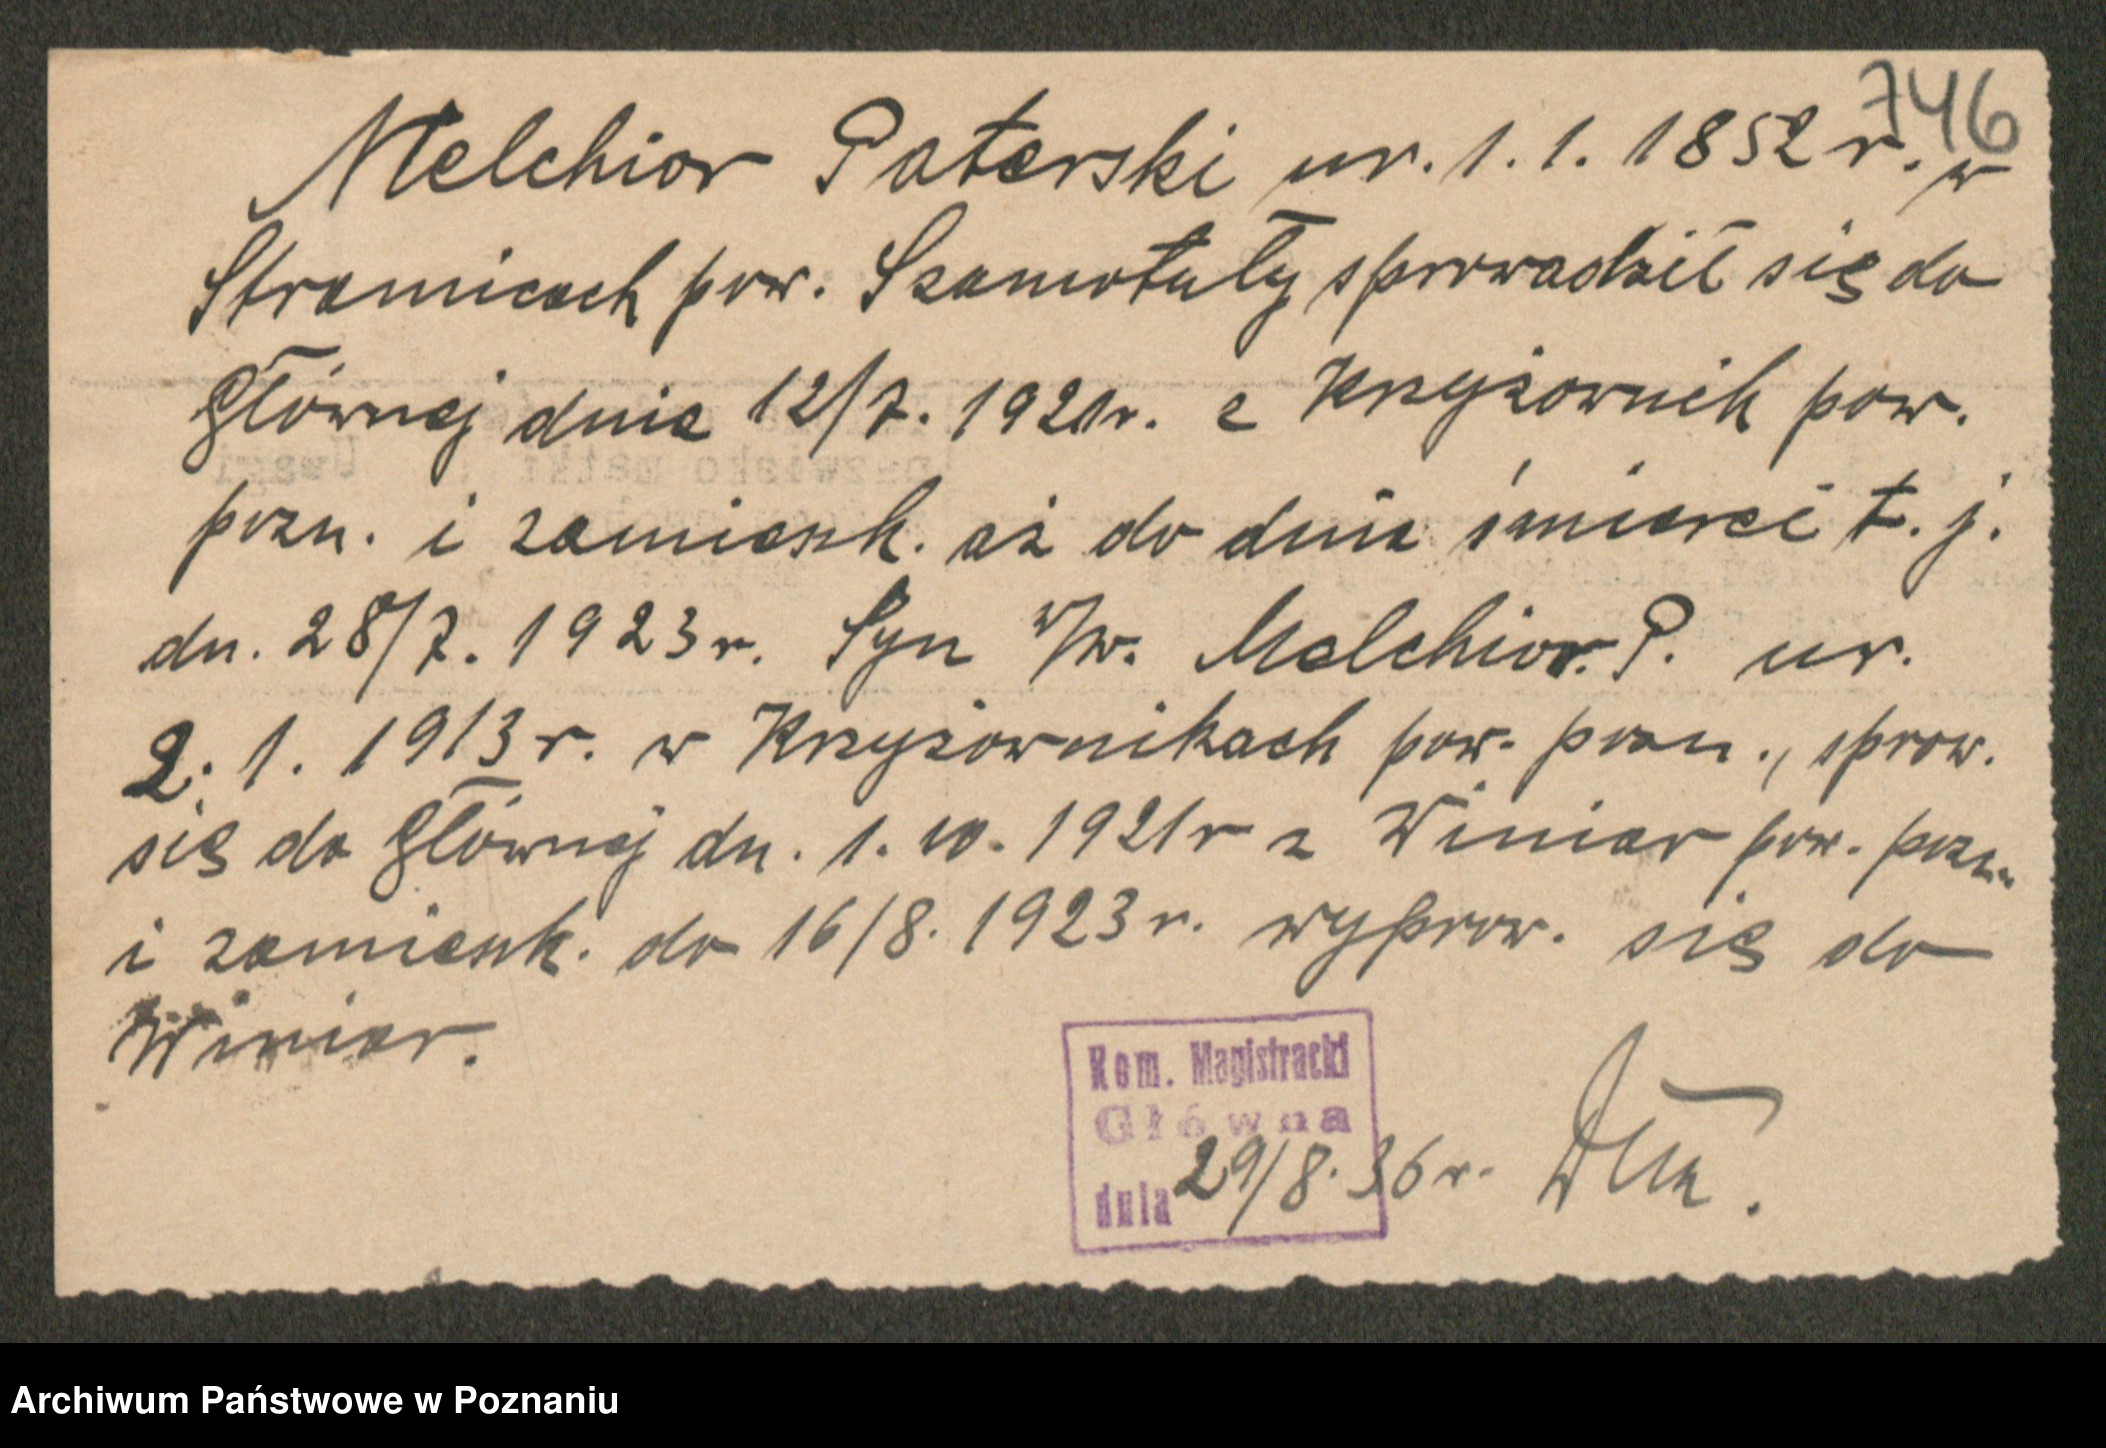 746
Melchior Paterski ur. 1. 1. 1852 r. w
Stramicach pow. Szamotuły sprowadził się do
Głównej dnia 12/7. 1921r. z Krzyżownik pow.
pozn. i zamieszk. aż do dnia śmierci t. j.
dn. 28/7. 1923 r. Syn w/w. Melchior. P. ur.
2. 1. 1913 r. w Krzyżownikach pow. pozn., sprow.
się do Głównej dn. 1. 10. 1921r z Winiar pow. pozn.
i zamieszk. do 16/8. 1923 r. wyprow. się do
Winiar.
Kom. Magistracki
Główna
dnia 29/8. 36 r.
Archiwum Państwowe w Poznaniu